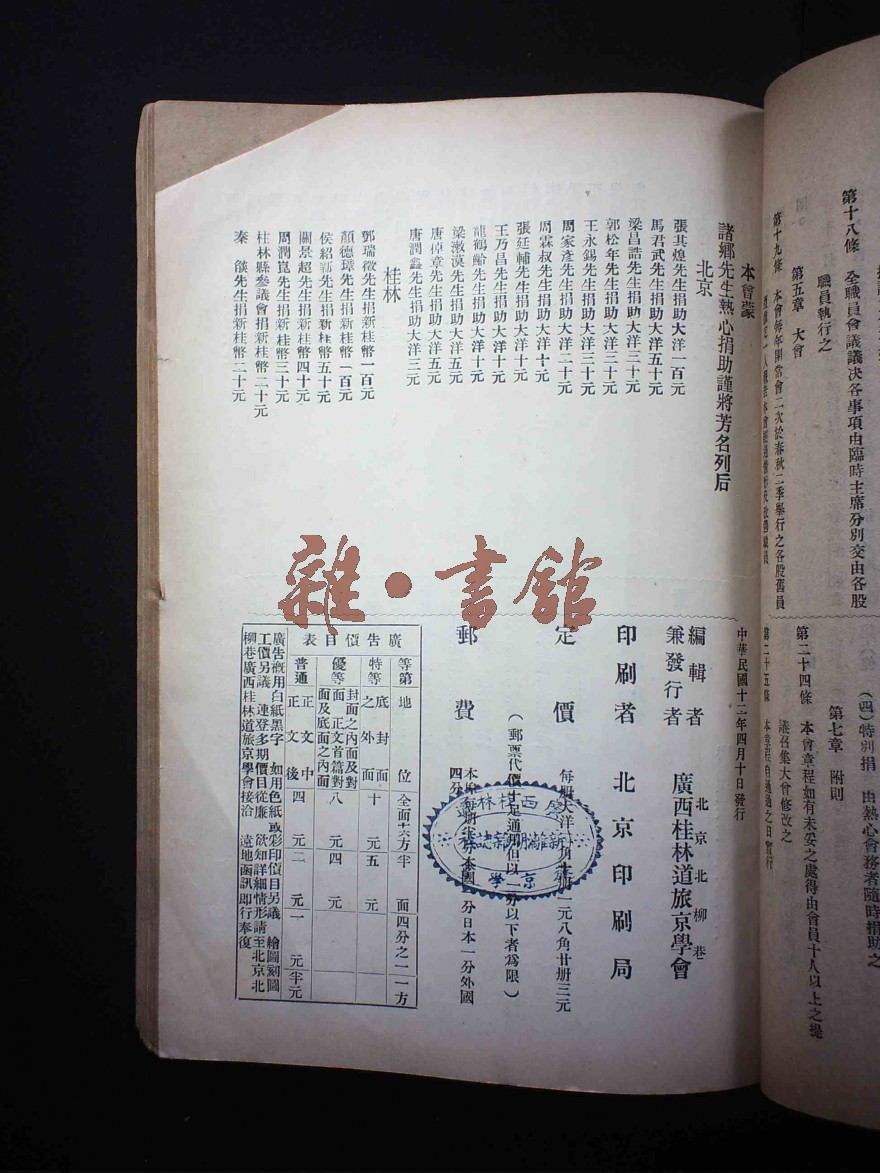 第十八條　全職員會議議决各事項由臨時主席分別交由各股
職員執行之
第五章　大會
第十九條　本會每年開常會二次於春秋二季舉行之各股舊員
(四)特別捐　由熱心會務者隨時捐助之
第七章　附則
第二十四條　本會章程如有未妥之處得由會員十人以上之提
議召集大會修改之
第二十五條　本章程自通過之日實行
本會蒙
諸鄉先生熱心捐助謹將芳名列后
北京
張其煌先生捐助大洋一百元
馬君武先生捐助大洋五十元
梁昌誥先生捐助大洋三十元
郭松年先生捐助大洋三十元
王永錫先生捐助大洋三十元
周家彥先生捐助大洋二十元
周霖叔先生捐助大洋十元
張廷輔先生捐助大洋十元
王乃昌先生捐助大洋十元
龍鶴齡先生捐助大洋十元
梁漱漠先生捐助大洋五元
唐倬章先生捐助大洋五元
唐潤鑫先生捐助大洋三元
桂林
鄧瑞徵先生捐新桂幣一百元
顏德璋先生捐新桂幣一百元
侯紹勳先生捐新桂幣五十元
關景超先生捐新桂幣四十元
周潤崑先生捐新桂幣三十元
桂林縣參議會捐新桂幣二十元
秦　燄先生捐新桂幣二十元
中華民國十二年四月十日發行
編輯者
兼發行者
北京北柳巷
廣西桂林道旅京學會
印刷者　北京印刷局
定價
每册大洋一角十册一元八角廿册三元
(郵票代價十足通用但以一分以下者爲限)
郵費
本埠每期半分本國一分日本一分外國
四分
廣告價目表
等第　地位　全面十六方　半面　四分之一　一方
特等　底封面之外面　十元　五元
優等　封面之內面及對面正文首篇對面及底面之內面　八元　四元
普通　正文中　正文後　四元　二元　一元　半元
廣告概用白紙黑字　如用色紙或彩印價目另議　繪圖刻圖
工價另議　連登多期價目從廉　欲知詳細情形請至北京北
柳巷廣西桂林道旅京學會接洽　遠地函訊即行奉復
雜·書館